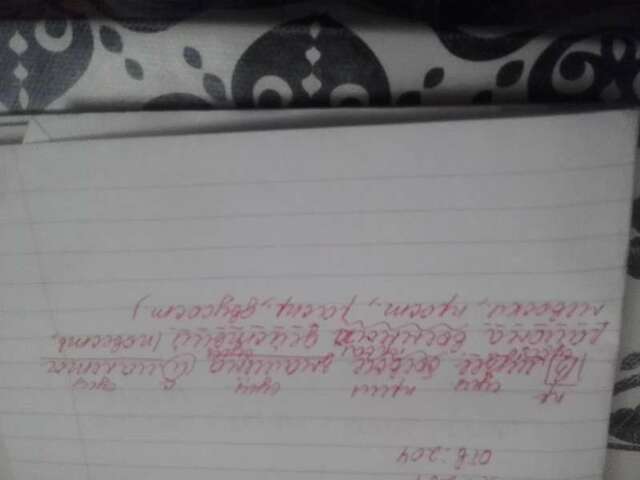 отв: 204
пр сущ прил сущ с сущ
В музее боевые знамёна и макеты
района военных действий (повеств.,
невоскл., прост., распр., двусост.)